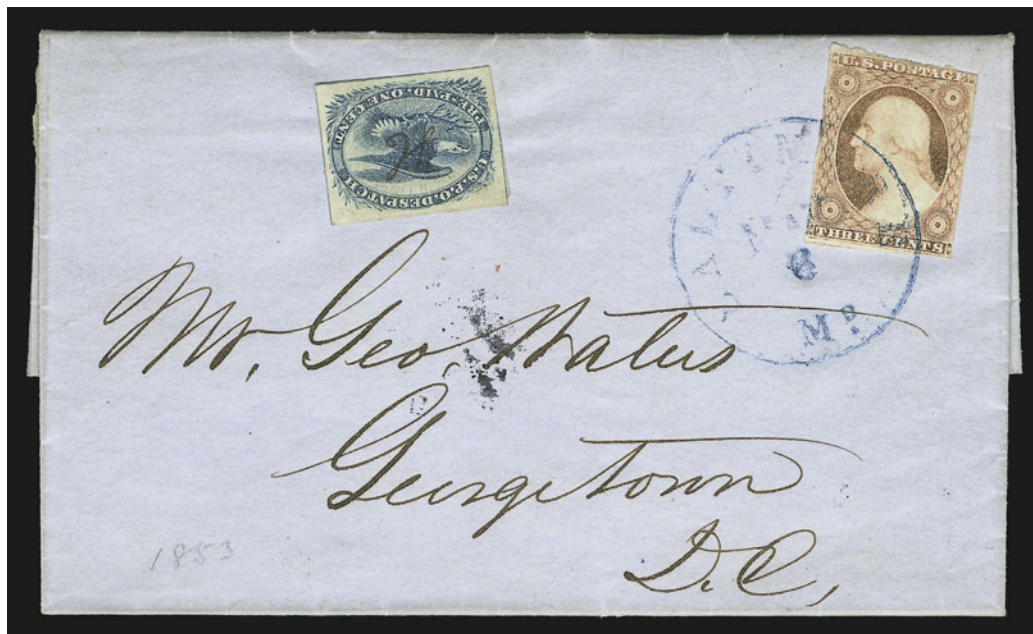 U.S.P.O. DESPATCH
PRE-PAID. ONE CENT.
U.S. POSTAGE
THREE CENTS
6
MD.
Mr. Geo. Waters
Georgetown
D.C.
1853